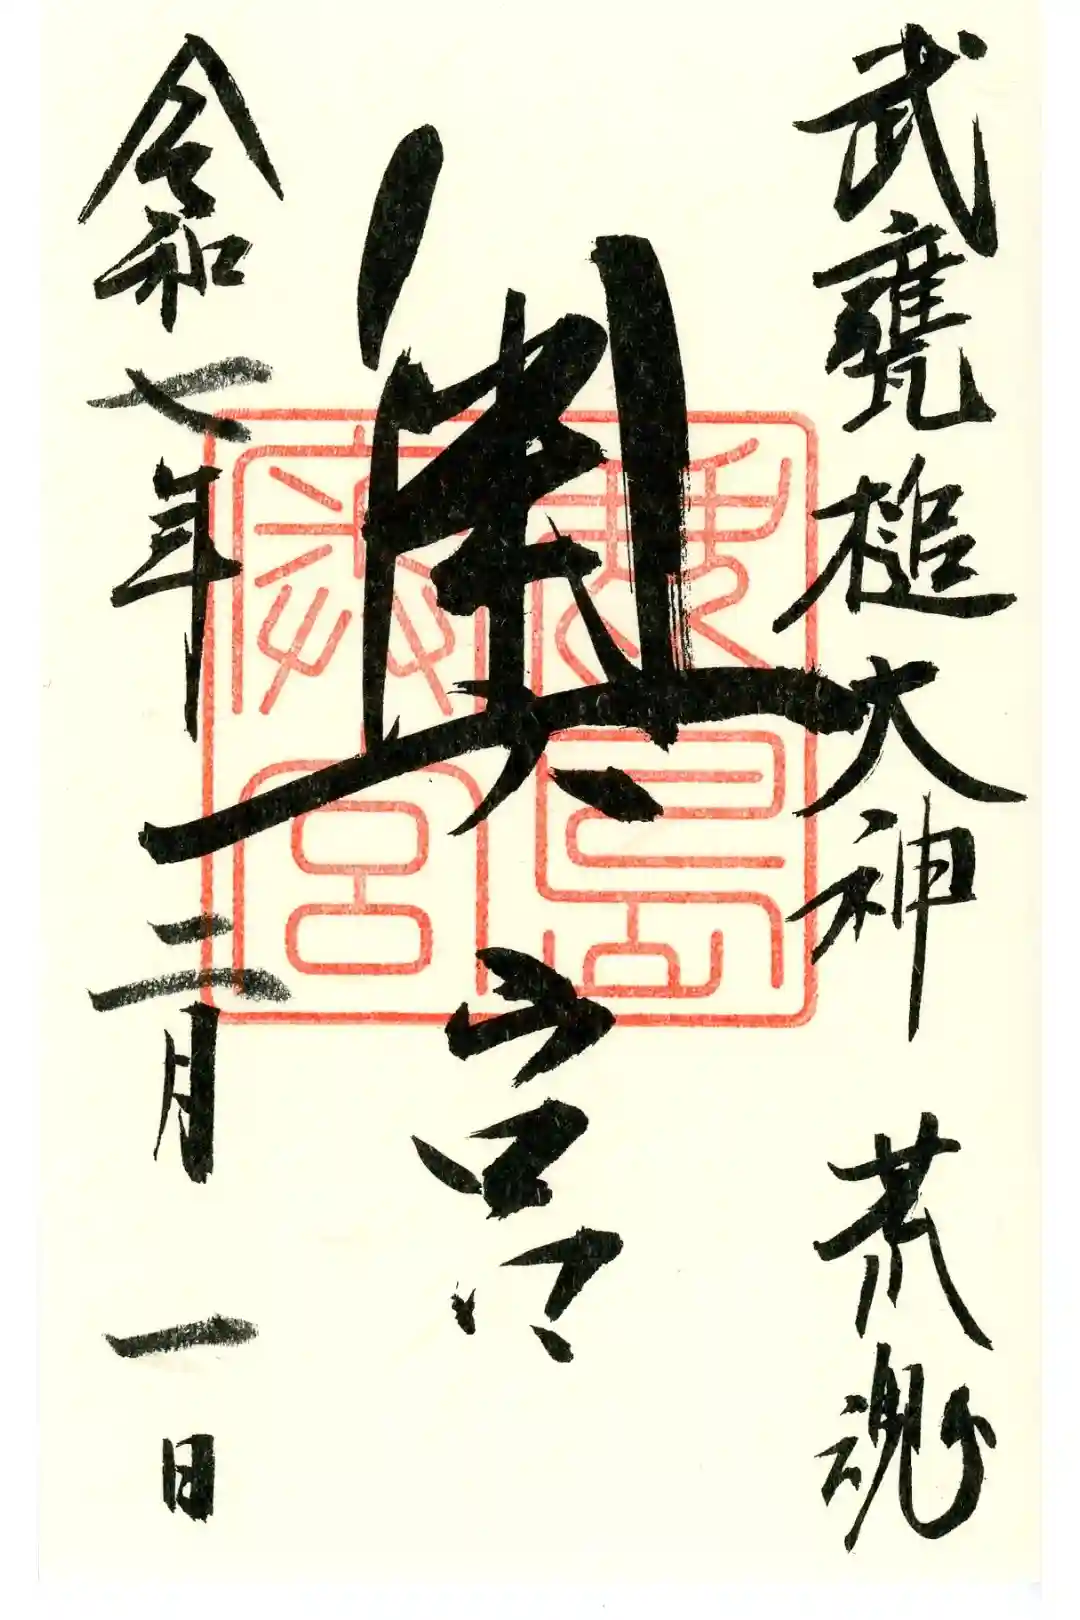 武甕槌大神 荒魂
奥宮
鹿島
奥宮
令和七年二月一日